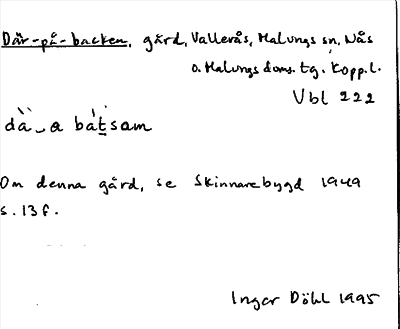 Där-på-backen, gård, Vallerås, Malungs sn, Nås
o. Malungs doms. tg. Kopp.l.
Vbl 222
dà‿a bàtsam
Om denna gård, se Skinnarebygd 1949
s. 13 f.
Inger Döhl 1995